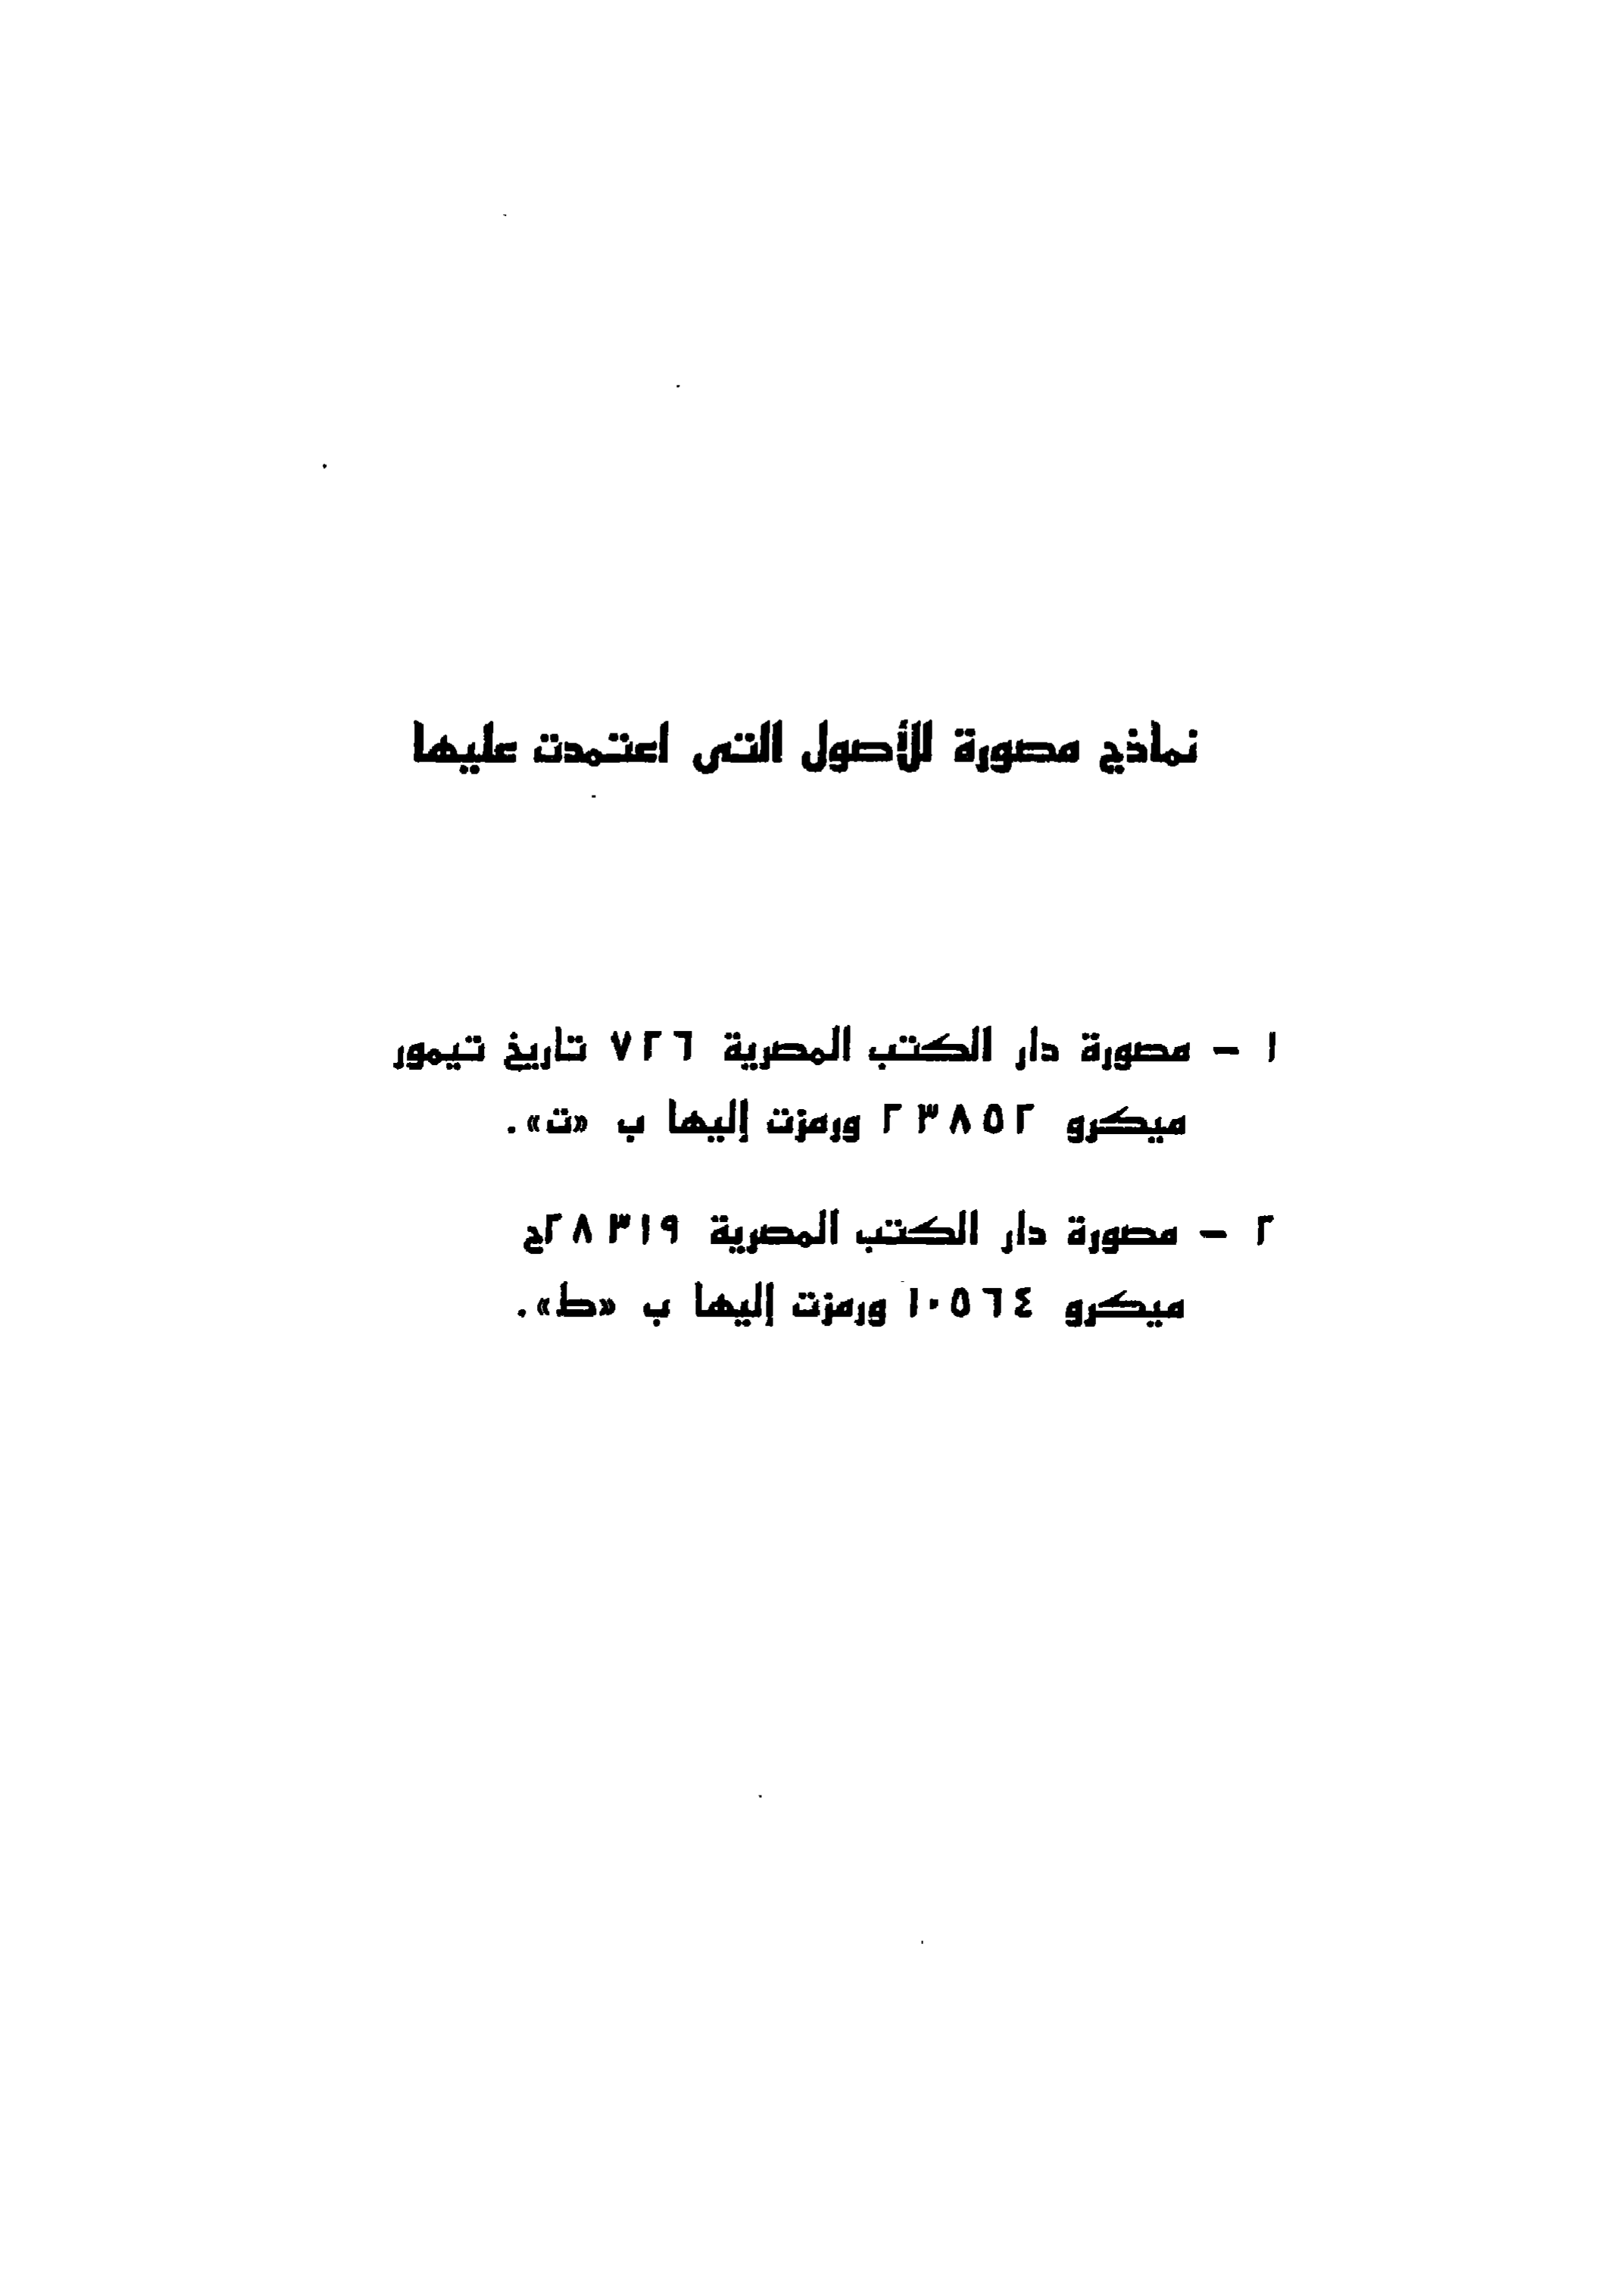 نماذج مصورة للأصول التى اعتمدت عليها
١ - مصورة دار الكتب المصرية ٧٢٦ تاريخ تيمور
ميكرو ٢٣٨٥٢ ورمزت إليها ب «ت».
٢ - مصورة دار الكتب المصرية ٢٨٣١٩ج
ميكرو ١٠٥٦٤ ورمزت إليها ب «ط».